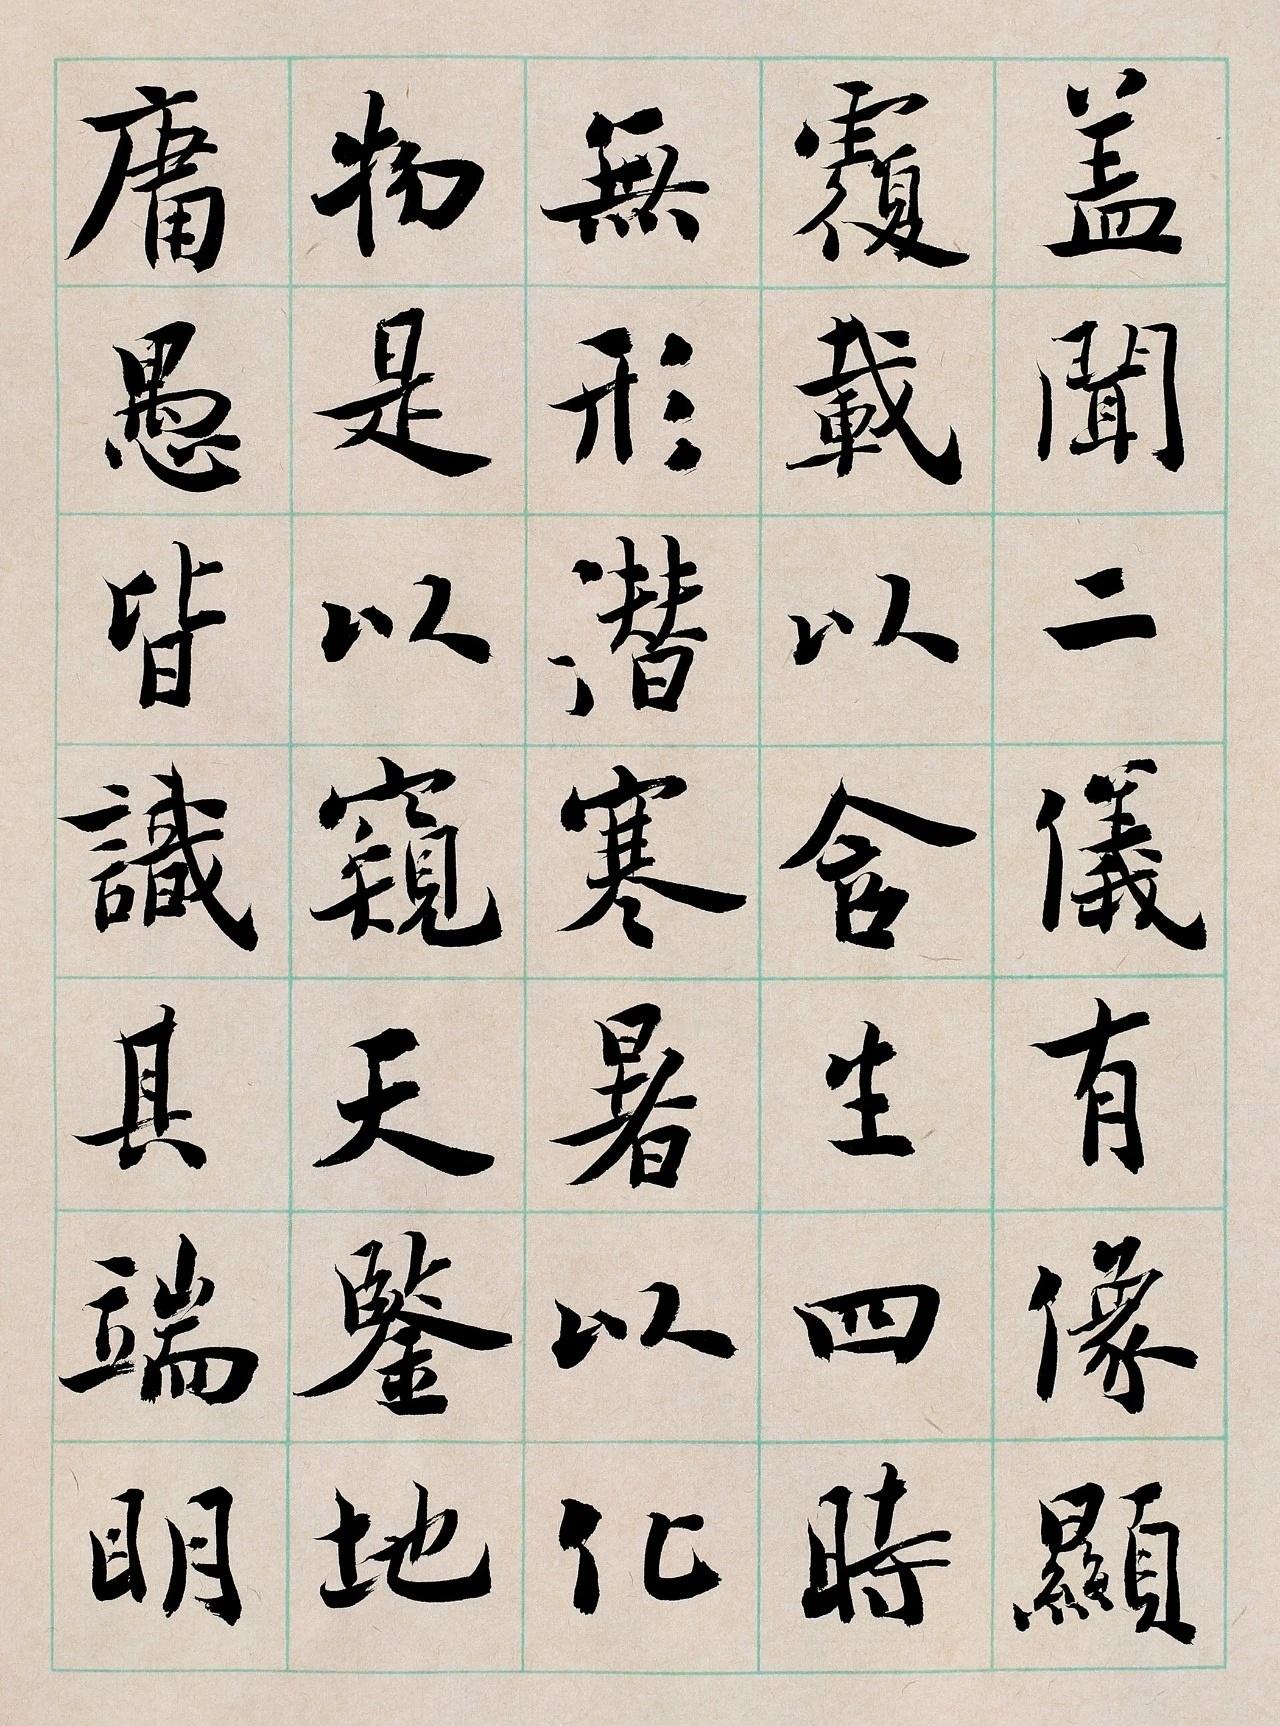 盖聞二儀有像顯
覆載以含生四時
無形潛寒暑以化
物是以窺天鑒地
庸愚皆識其端明